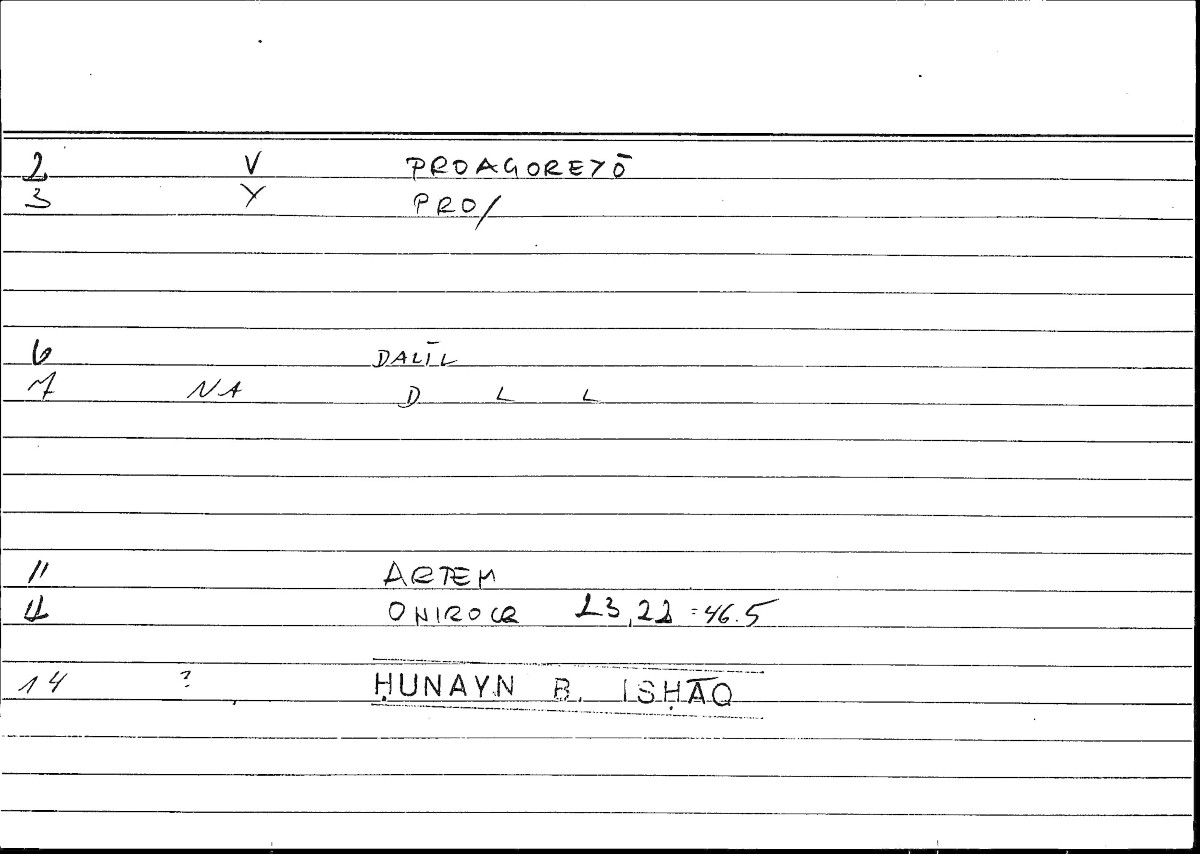 2 V PROAGOREYŌ
3 Y PRO/
6 DALĪL
7 NA D L L
11 ARTEM
12 ONIROCR 23,22 = 46.5
14 ? ḤUNAYN B. ISḤĀQ